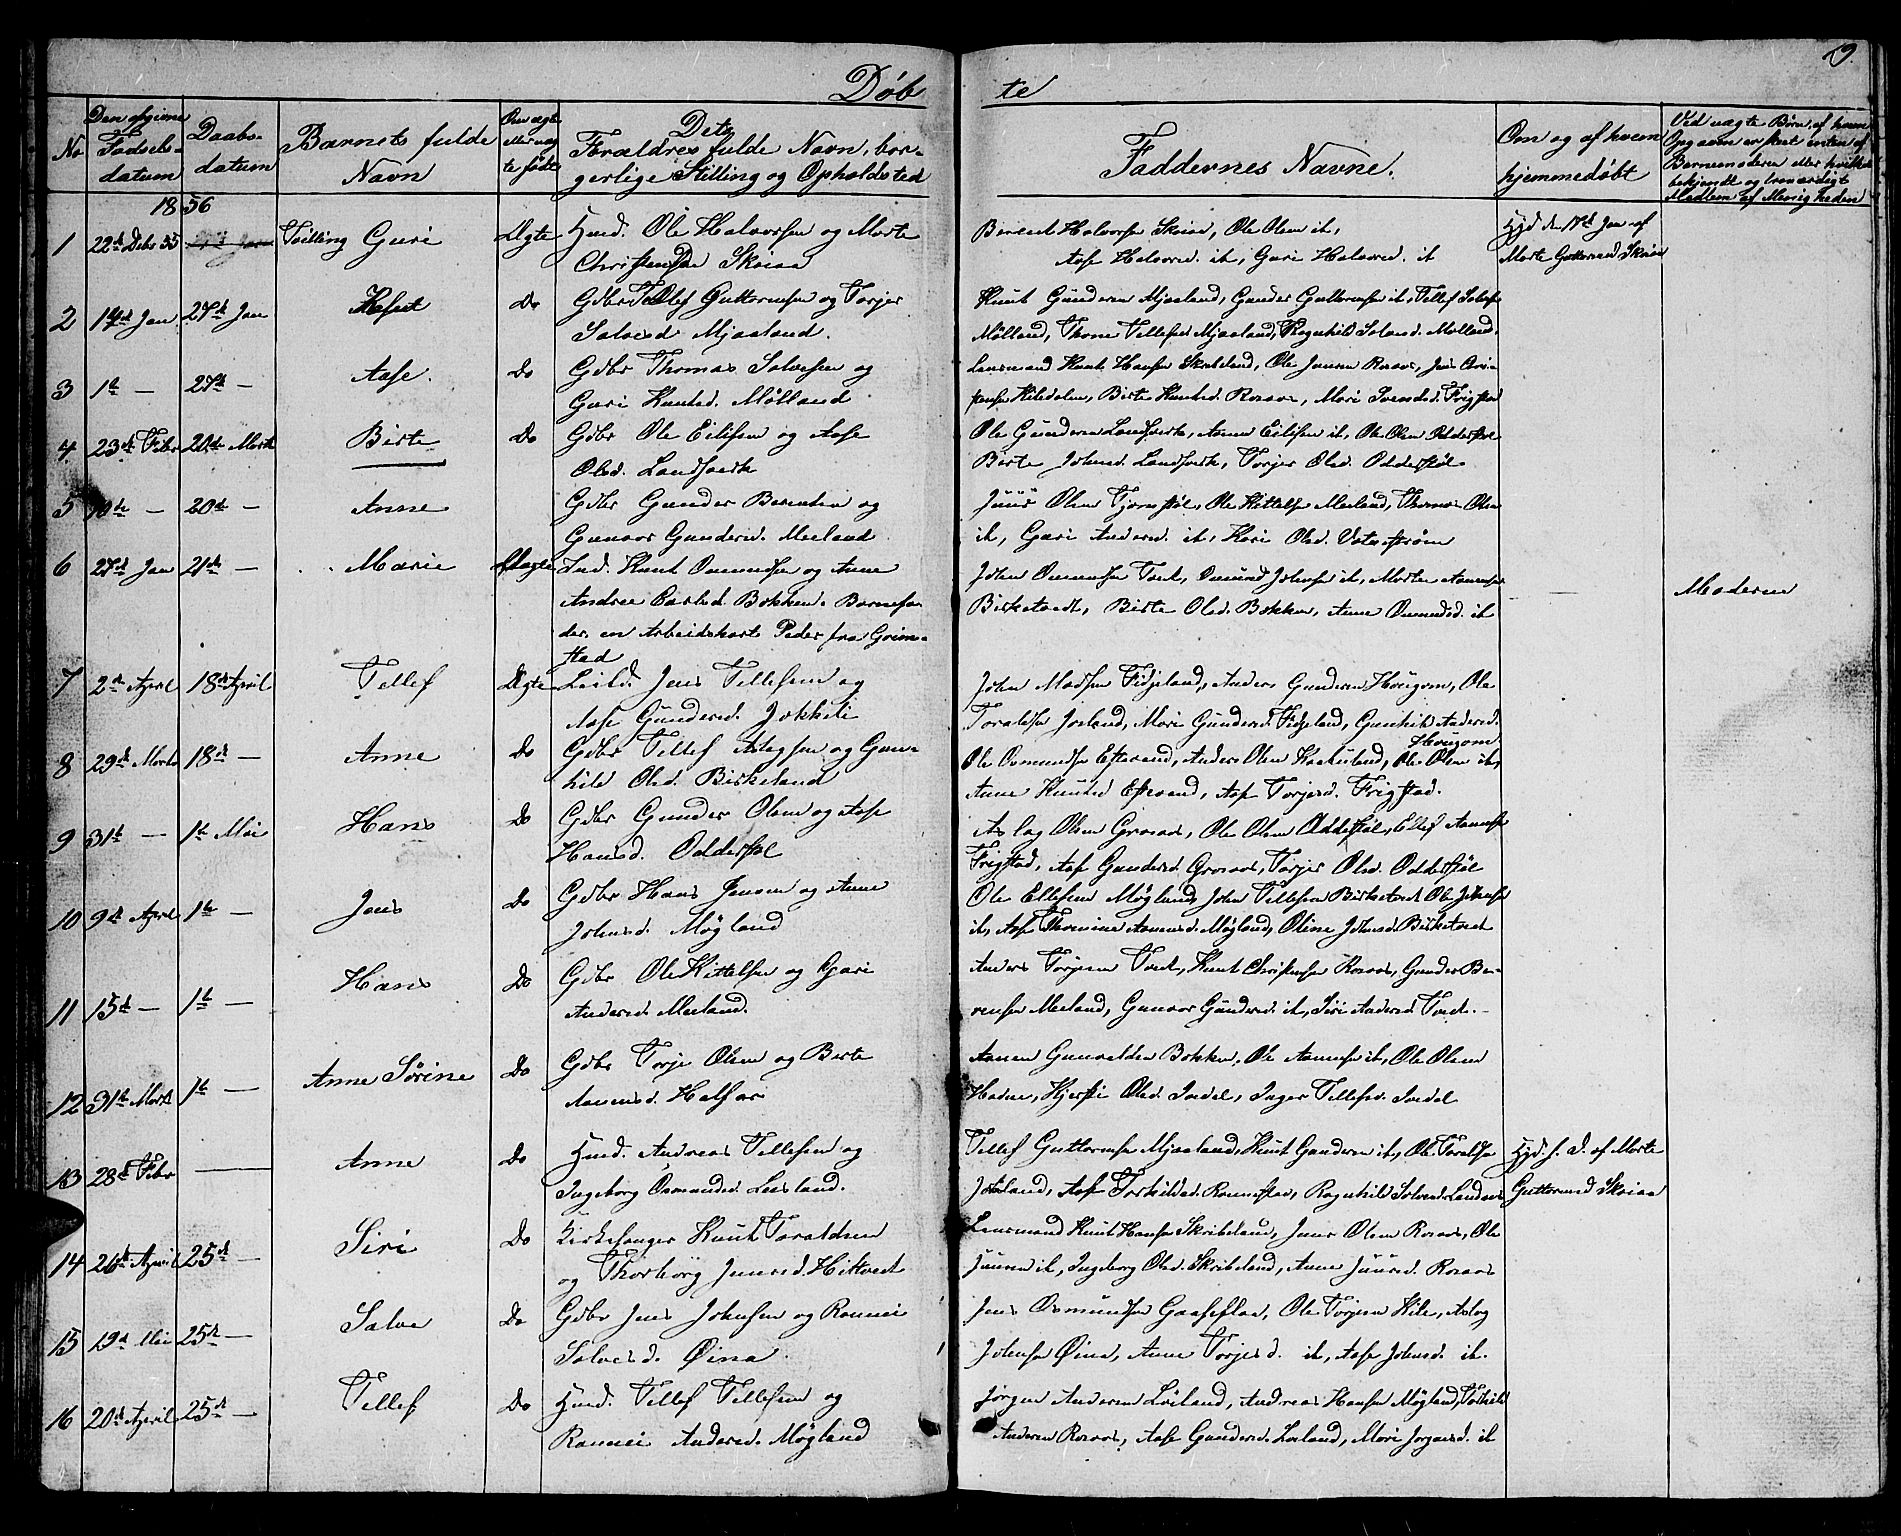 Døbte
9.
No
Den opgivne Fødsels-datum
Daabs-datum
Barnets fulde Navn
Om ægte eller uægte fødte
Dets Forældres fulde Navn, borgerlige Stilling og Opholdsted
Faddernes Navne.
Om og af hvem hjemmedøbt
Ved uægte Børn, af hvem Opgaven er skeet enten af Barnemoderen eller hvilket bekjendt og troværdigt Medlem af Menigheden
1856
1 22de Debr 55 Tvilling Guri Ægte Huusd. Ole Halvorsen og Marte
Christensd. Skeiaa
Berent Halvorsen Skeiaa, Ole Olsen it,
Aase Halvorsd. it, Guri Halvorsd. it
Hjd den 17d Jan af
Marte Guttormsd Skeiaa
2 14d Jan 27de Jan Knut Do Gdbr Tellef Guttormsen og Torjer
Salvesd Mjaaland.
Knut Gundersen Mjaaland, Gunder Guttormsen it, Tellef Salvesen
Mølland, Thone Tellefsd Mjaaland, Ragnhild Salvesd. Mølland.
3 1te — 27de — Aase. Do Gdbr Thomas Salvesen og
Guri Knutsd. Mølland
Lensmand Knut Hansen Skribeland, Ole Jensen Rosaas, Jens Christensen
Hiledalen, Birte Knutsd. Rosaas, Mari Svendsd. Frigstad
4 23de Febr 20de Marts Birte Do Gdbr Ole Eilifsen og Aase
Olsd. Landsverk
Ole Gundersen Landsverk, Aanen Eilifsen it, Ole Olsen Odderstøl
Birte Johnsd. Landsverk, Torjer Olsd. Odderstøl
5 10de — 20de — Anne Gdbr Gunder Berentsen og
Gunvor Gundersd. Meeland
Juus Olsen Tjomstøl, Ole Kittelsen Meeland, Thomas Olsen
it, Guri Andersd. it, Kari Olsd. Vatnestrøm
6 27de Jan 21de — Marie Uægte Ind. Knut Osmundsen og Anne
Andrea Carlsd. Bokken. Barnefader
en Arbeidskarl Peder fra Grimstad
John Osmundsen Tveit, Osmund Johnsen it, Marthe Aanensen
Birketvedt, Birte Olsd. Bokken, Anne Osmundsd. it
Moderen
7 2de April 18de April Tellef Ægte Leild. Jens Tellefsen og
Aase Gundersd. Jokkeli
John Madsen Fidjeland, Anders Gundersen Hougom, Ole
Toraldsen Josland, Mari Gundersd. Fidjeland, Gunhild Andersd.
Hougom
8 29de Marts 18de — Anne Do Gdbr Tellef Aslagsen og Gunhild
Olsd. Birkeland
Ole Osmundsen Eftevand, Anders Olsen Kaaluland, Ole Olsen it,
Anne Knutsd Eftevand, Aase Torjersd. Frigstad.
9 31te — 1te Mai Hans Do Gdbr Gunder Olsen og Aase
Hansd. Odderstøl
Aslag Olsen Grosaas, Ole Olsen Odderstøl, Ellef Aanensen
Frigstad, Aase Gundersd. Grosaas, Torjer Olsd. Odderstøl
10 9de April 1te — Jens Do Gdbr Hans Jensen og Anne
Johnsd. Møgland
Ole Ellefsen Møgland, John Tellefsen Birketvedt Ole Johnsen
it, Aase Thomine Aanensd. Møgland, Oline Johnsd. Birketvedt
11 15de — 1te — Hans Do Gdbr Ole Kittelsen og Guri
Andersd. Meeland.
Anders Torjesen Tveit, Knut Christensen Rosaas, Gunder Berentsen
Meeland, Gunvor Gundersd. it, Siri Andersd Tveit.
12 31te Marts 1te — Anne Sørine Do Gdbr Torje Olsen og Birte
Aanensd. Halfar
Aanen Gunvaldsen Bokken, Ole Aanensen it, Ole Olsen
Hodne, Kjersti Olsd. Ivedal, Inger Tellefsd. Ivedal
13 28de Febr — Anne Do Huusd. Andreas Tellefsen og
Ingeborg Osmundsd. Leiland.
Tellef Guttormsen Mjaaland, Knut Gundersen it, Ole Toraldsen
Josland, Aase Torkildsd. Rannestøl, Ragnhild Salvesd.
Hjd. s. D. af Marte
Guttormsd Skeiaa
14 26de April 25de — Siri Do Kirkesanger Knut Toraldsen
og Thorborg Juusd. Hiltveit
Lensmand Knut Hansen Skribeland, Juus Olsen Rosaas, Ole
Juusen it, Ingeborg Olsd. Skribeland, Anne Juusd. Rosaas
15 19de Mai 25de — Salve Do Gdbr Jens Johnsen og Rannei
Salvesd. Øina.
Jens Osmundsen Gaaseflaa, Ole Torjesen Hile, Aslag
Johnsen Øina, Anne Torjesd. it, Aase Johnsd. it.
16 20de April 25de — Tellef Do Huusd. Tellef Tellefsen og
Rannei Andersd. Møgland
Jørgen Andersen Løiland, Andreas Hansen Møgland, Torkild
Andersen Rosaas, Aase Gundersd. Løiland, Mari Jørgensd. it